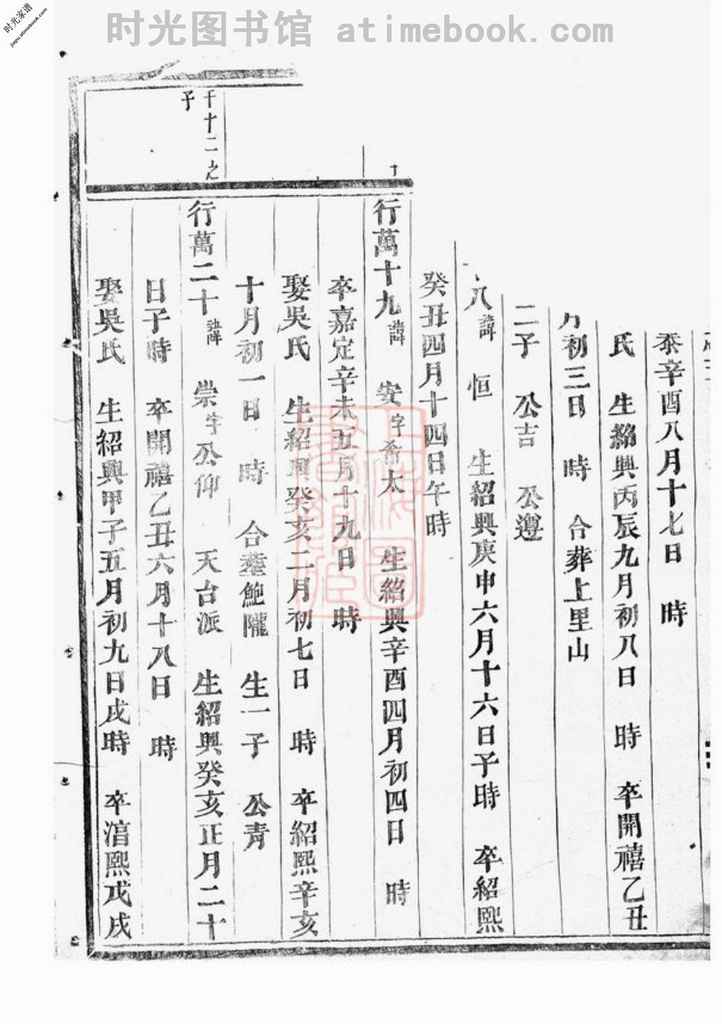 时光图书馆 atimebook.com
时光家谱
jiapu.atimebook.com
泰辛酉八月十七日 時
氏 生紹興丙辰九月初八日 時 卒開禧乙丑
月初三日 時 合葬上里山
二子 公吉 公遵
八 諱恒 生紹興庚申六月十六日子時 卒紹熙
癸丑四月十四日午時
行萬十九 諱安字希太 生紹興辛酉四月初四日 時
卒嘉定辛未五月十九日 時
娶吳氏 生紹興癸亥二月初七日 時 卒紹熙辛亥
十月初一日 時 合塟鮑隴 生一子 公青
千十二之子
行萬二十 諱崇字公仰 天台派 生紹興癸亥正月二十
日子時 卒開禧乙丑六月十八日 時
娶吳氏 生紹興甲子五月初九日戌時 卒淯熙戊戌